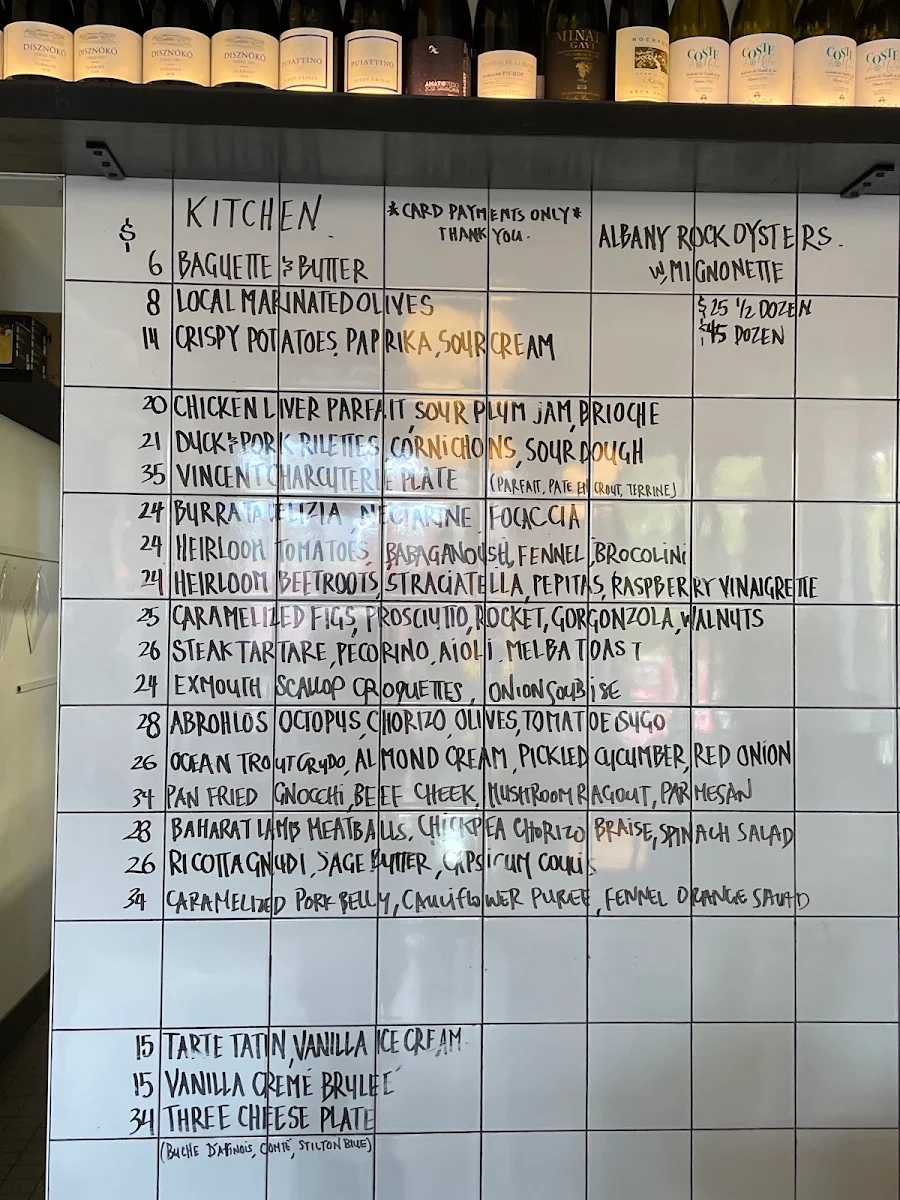 DISZNÓKŐ
DISZNÓKŐ
DISZNÓKŐ
DISZNÓKŐ
PUIATTINO
PUIATTINO
GAVI
COSTE
COSTE
COSTE
COSTE
$
KITCHEN
*CARD PAYMENTS ONLY*
THANK YOU.
ALBANY ROCK OYSTERS.
W, MIGNONETTE
$25 1/2 DOZEN
$45 DOZEN
6 BAGUETTE & BUTTER
8 LOCAL MARINATED OLIVES
14 CRISPY POTATOES, PAPRIKA, SOUR CREAM
20 CHICKEN LIVER PARFAIT SOUR PLUM JAM, BRIOCHE
21 DUCK & PORK RILETTES, CORNICHONS, SOURDOUGH
35 VINCENT CHARCUTERIE PLATE (PARFAIT, PATE EN CROUT, TERRINE)
24 BURRATA DELIZIA NECTARINE FOCACCIA
24 HEIRLOOM TOMATOES, BABAGANOUSH, FENNEL, BROCOLINI
24 HEIRLOOM BEETROOTS, STRACIATELLA, PEPITAS, RASPBERRY VINAIGRETTE
25 CARAMELIZED FIGS, PROSCIUTTO, ROCKET, GORGONZOLA, WALNUTS
26 STEAK TARTARE, PECORINO, AIOLI, MELBA TOAST
24 EXMOUTH SCALLOP CROQUETTES, ONION SOUBISE
28 ABROHLOS OCTOPUS, CHORIZO, OLIVES, TOMATOE SUGO
26 OCEAN TROUT CRUDO, ALMOND CREAM, PICKLED CUCUMBER, RED ONION
34 PAN FRIED GNOCCHI, BEEF CHEEK, MUSHROOM RAGOUT, PARMESAN
28 BAHARAT LAMB MEATBALLS, CHICKPEA CHORIZO BRAISE, SPINACH SALAD
26 RICOTTA GNUDI, SAGE BUTTER, CAPSICUM COULIS
34 CARAMELIZED PORK BELLY, CAULIFLOWER PUREE, FENNEL ORANGE SALAD
15 TARTE TATIN, VANILLA ICE CREAM
15 VANILLA CREMÉ BRULEÉ
34 THREE CHEESE PLATE
(BUCHE D'AFINOIS, COMTÉ, STILTON BLUE)